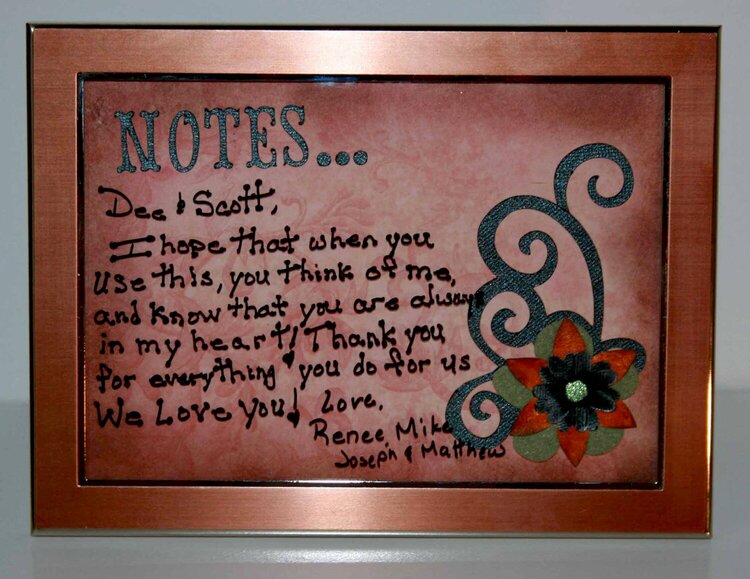 NOTES...
Dee & Scott,
I hope that when you
use this, you think of me,
and know that you are always
in my heart! Thank you
for everything you do for us
We Love You! Love,
Renee, Mike
Joseph & Matthew